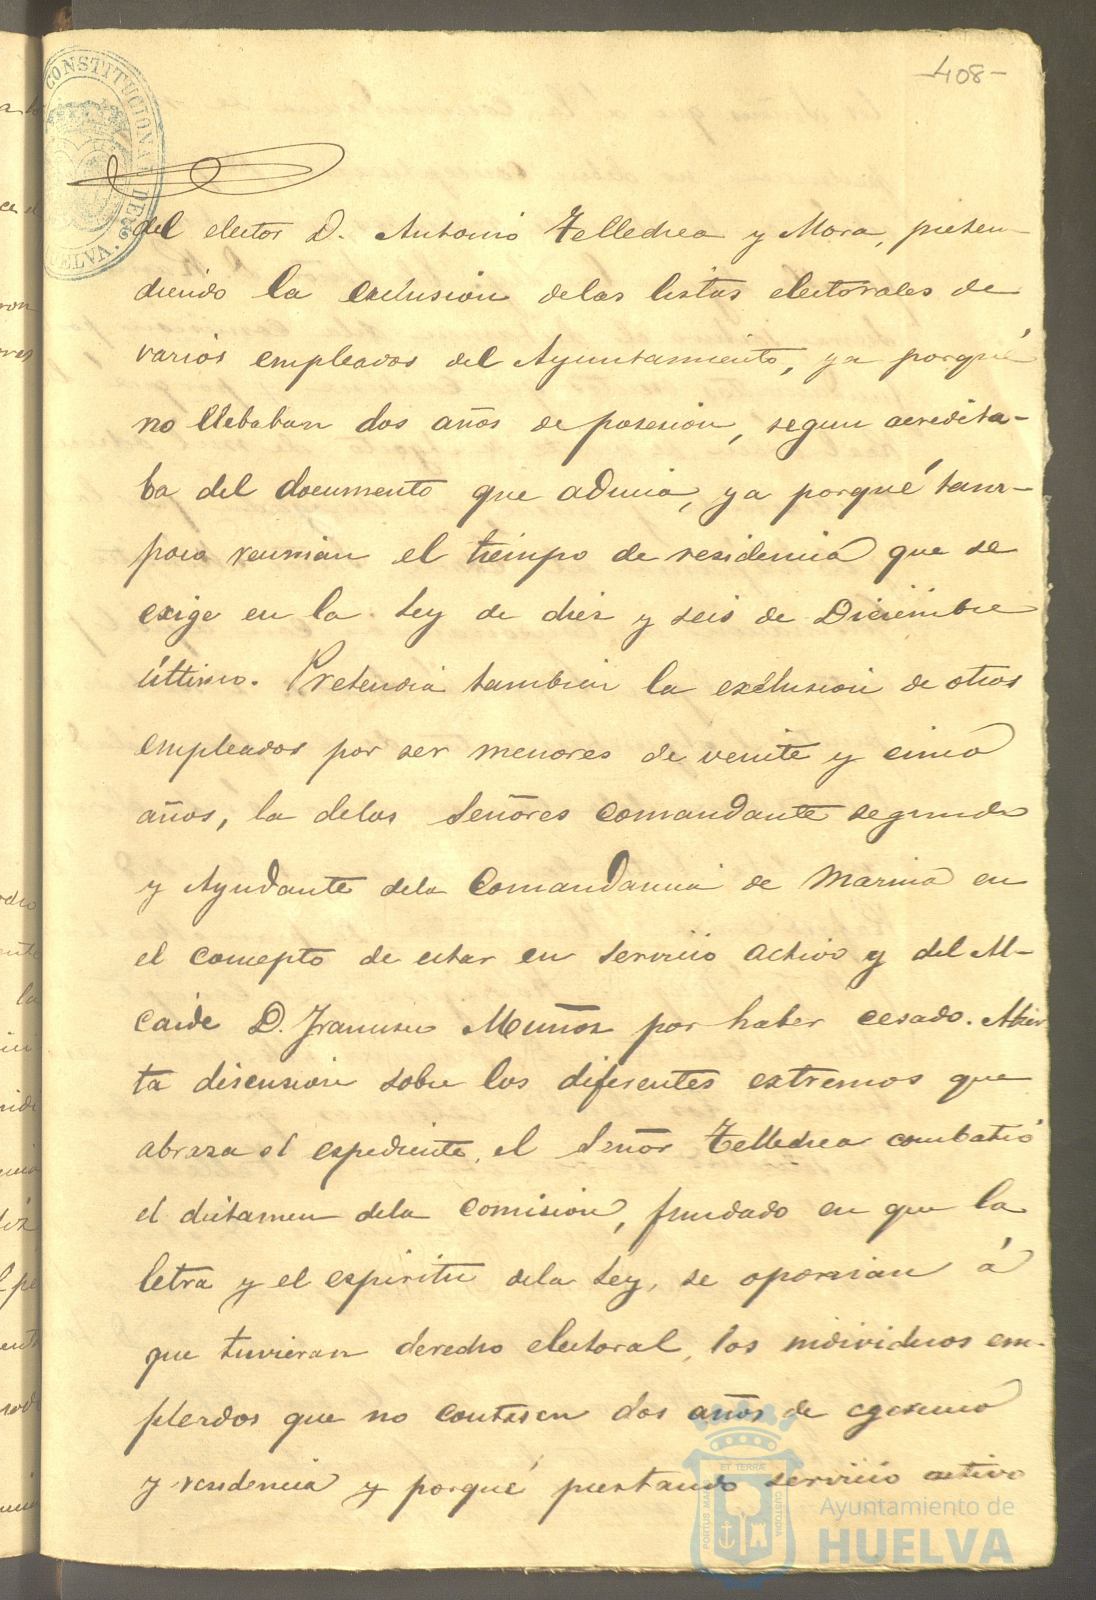 -408-
CONSTITUCIONAL DE HUELVA.
del elector D. Antonio Telledrea y Mora, preten-
diendo la exclusion delas listas electorales de
varios empleados del Ayuntamiento, ya porqué
no llebaban dos años de posesion, segun acredita-
ba del documento que aducia, ya porqué tam-
poco reunian el tiempo de residencia que se
exige en la Ley de diez y seis de Diciembre
último. Pretendia tambien la exclusion de otros
empleados por ser menores de veinte y cinco
años, la delos Señores Comandante segundo
y Ayudante dela Comandancia de Marina en
el concepto de estar en servicio activo y del Al-
caide D. Francisco Muñoz por haber cesado. Abier
ta discusion sobre los diferentes extremos que
abraza el expediente, el Señor Telledrea combatió
el dictamen dela Comision, fundado en que la
letra y el espiritu dela Ley, se oponian á
que tuvieran derecho electoral, los individuos em-
pleados que no contasen dos años de egercicio
y residencia y porqué prestando servicio activo
PORTUS MARIS ET TERRÆ CUSTODIA
Ayuntamiento de
HUELVA